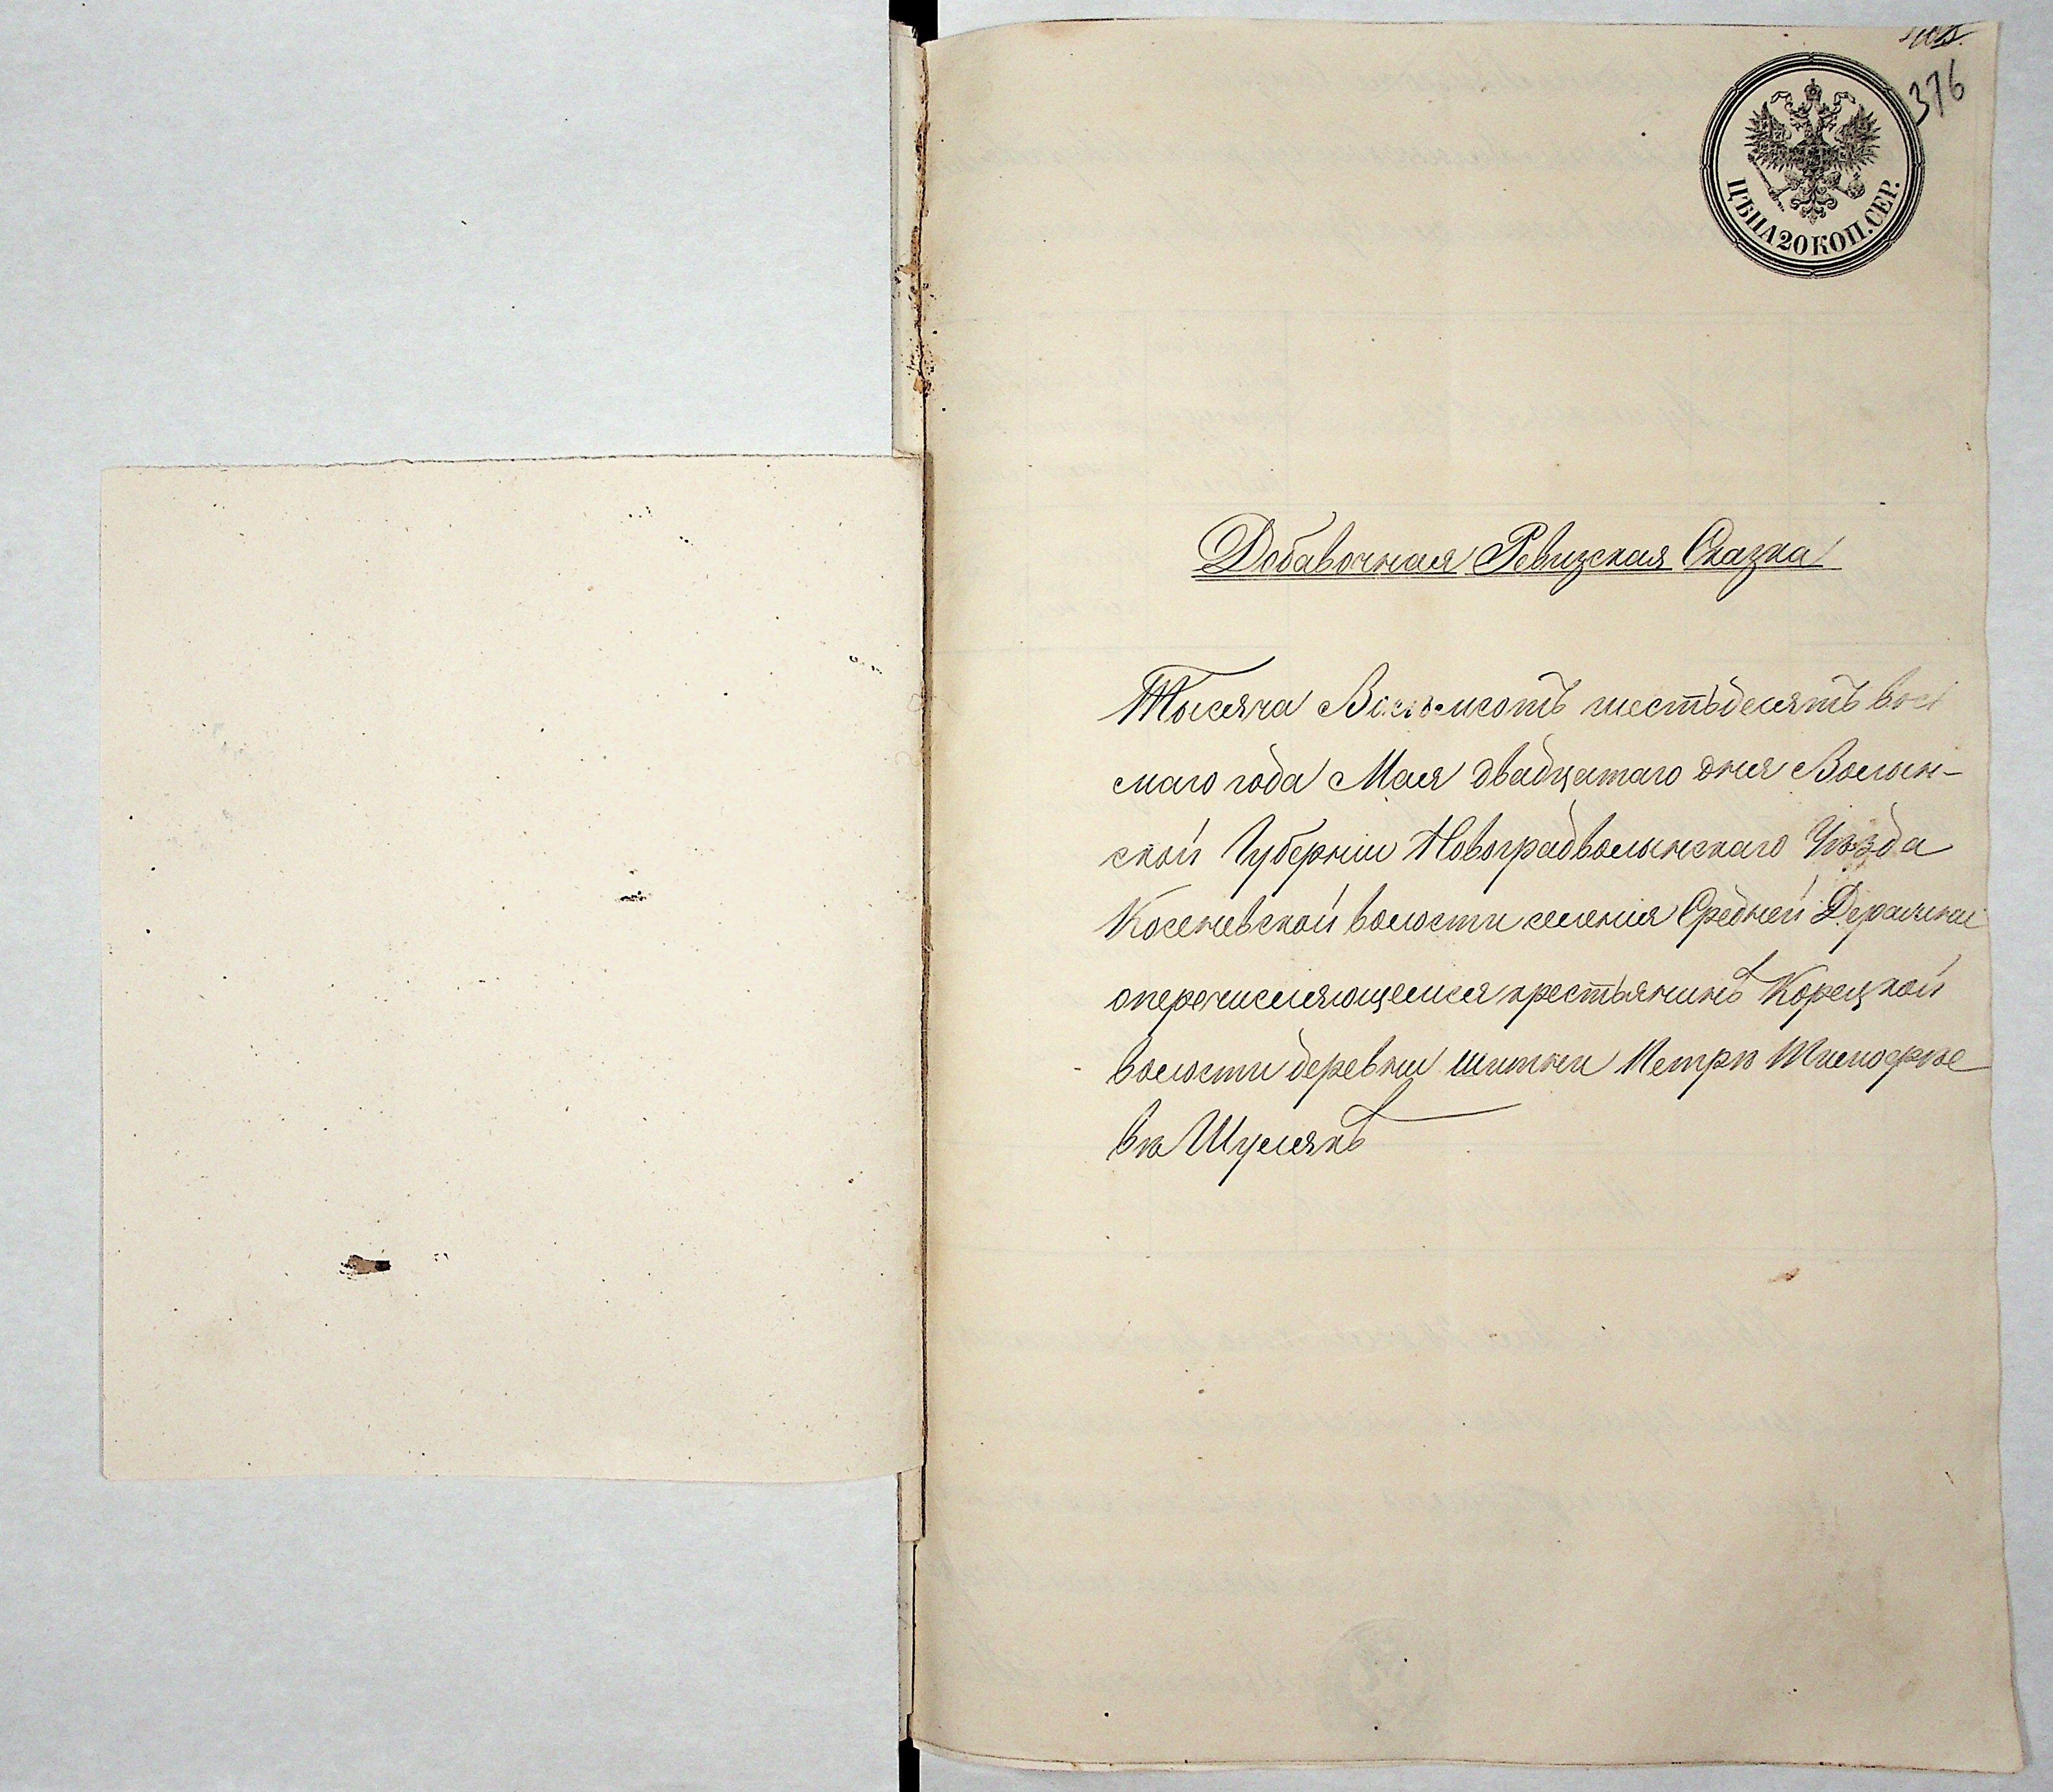 376
ЦѢНА 20 КОП. СЕР.
Добавочная Ревизская Сказка
Тысяча Восемсотъ шестьдесятъ вось
маго года Мая двадцатаго дня Волын-
ской Губерніи Новоградволынскаго Уѣзда
Косеневской волости селенія Средней Деражни
оперечисляющемся крестьянинѣ Корецкой
волости деревни Шитни Петрѣ Тимофѣе
вѣ Шулякѣ